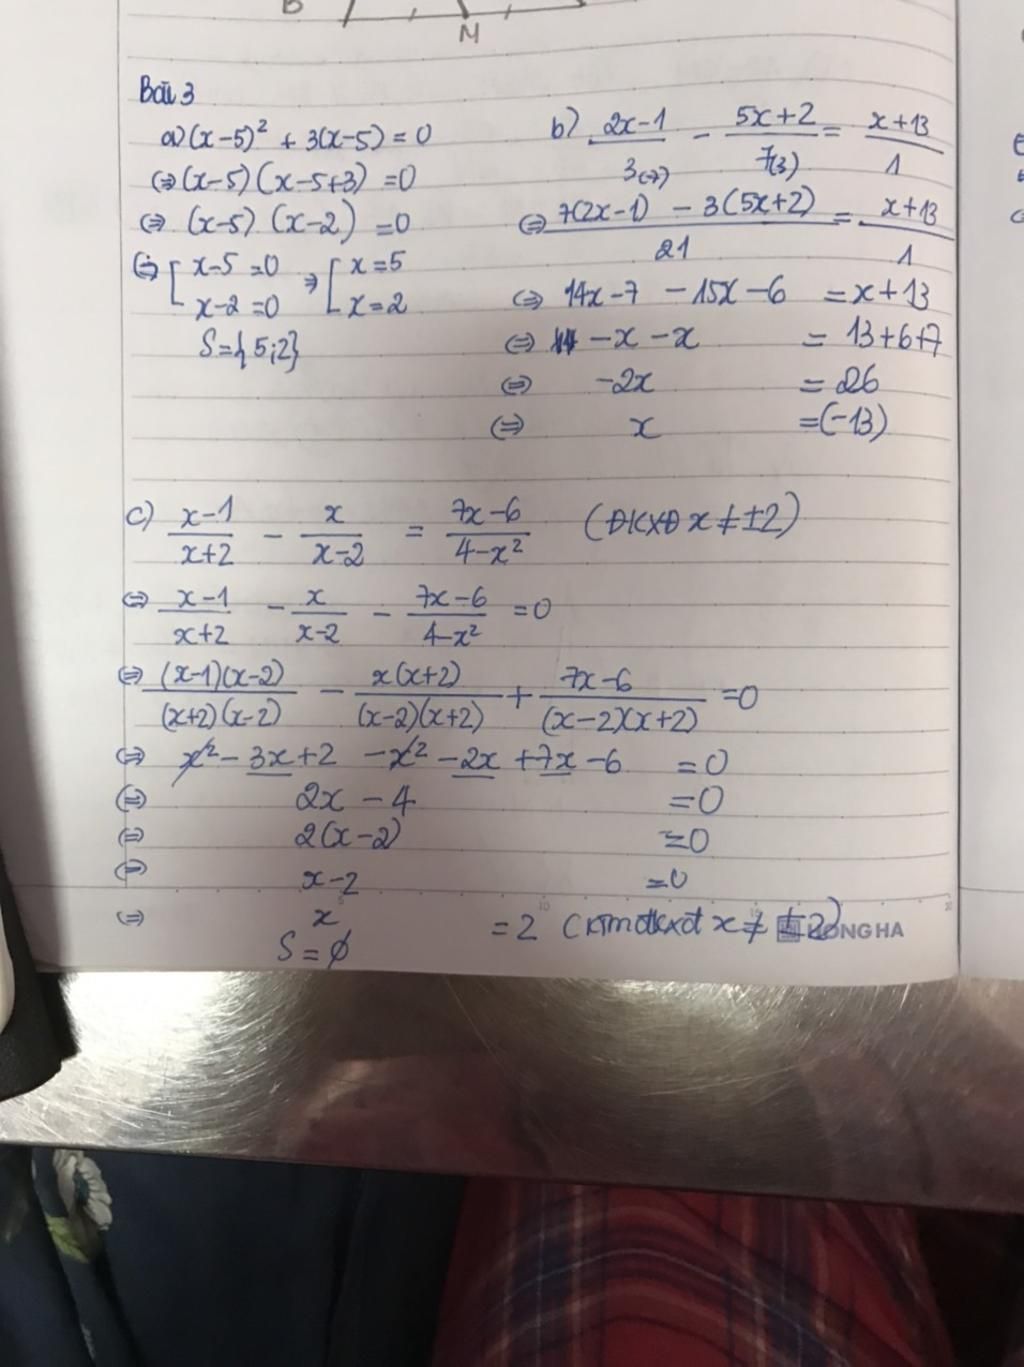 B
M
Bài 3
a) (x-5)² + 3(x-5) = 0
⇔ (x-5)(x-5+3) = 0
⇔ (x-5) (x-2) = 0
⇔ [ x-5 = 0 ⇒ [ x = 5
x-2 = 0 x = 2
S={5;2}
b) (2x-1)/3(7) - (5x+2)/7(3) = (x+13)/1
⇔ (7(2x-1) - 3(5x+2))/21 = (x+13)/1
⇔ 14x-7 - 15x-6 = x+13
⇔ -x-x = 13+6+7
⇔ -2x = 26
⇔ x =(-13)
c) (x-1)/(x+2) - x/(x-2) = (7x-6)/(4-x²) (ĐKXĐ x ≠ ±2)
⇔ (x-1)/(x+2) - x/(x-2) - (7x-6)/(4-x²) = 0
⇔ (x-1)(x-2)/(x+2)(x-2) - x(x+2)/(x-2)(x+2) + (7x-6)/(x-2)(x+2) = 0
⇔ x²-3x+2 -x²-2x+7x-6 = 0
⇔ 2x-4 = 0
⇔ 2(x-2) = 0
⇔ x-2 = 0
⇔ x = 2 (ktmđkxđ x ≠ ±2)
S = ∅
HONG HA